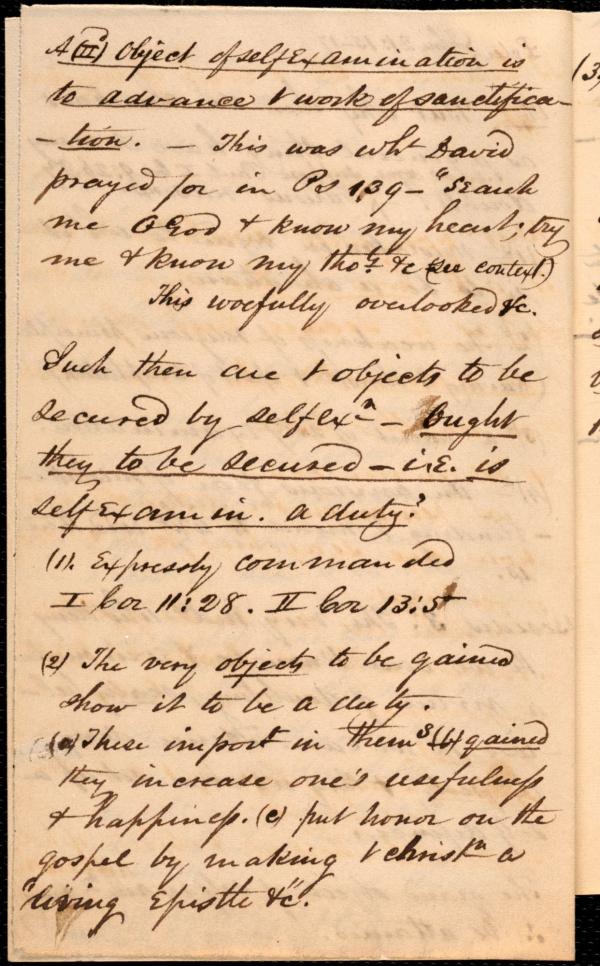 A (III) Object of self Examination is
to advance t work of sanctifica-
-tion. — This was wht David
prayed for in Ps 139 — "Search
me O God & know my heart; try
me & know my thots &c (see context.)
This woefully overlooked &c.
Such then are t objects to be
secured by self exn — Ought
they to be secured — i.E. is
self Examin. a duty?
(1). Expressly commanded
I Cor 11:28. II Cor 13:5
(2) The very objects to be gained
show it to be a duty.
(a) These import in thems (b) gained
they increase one's usefulness
& happiness. (c) put honor on the
gospel by making t christn a
"living Epistle &c".
(3